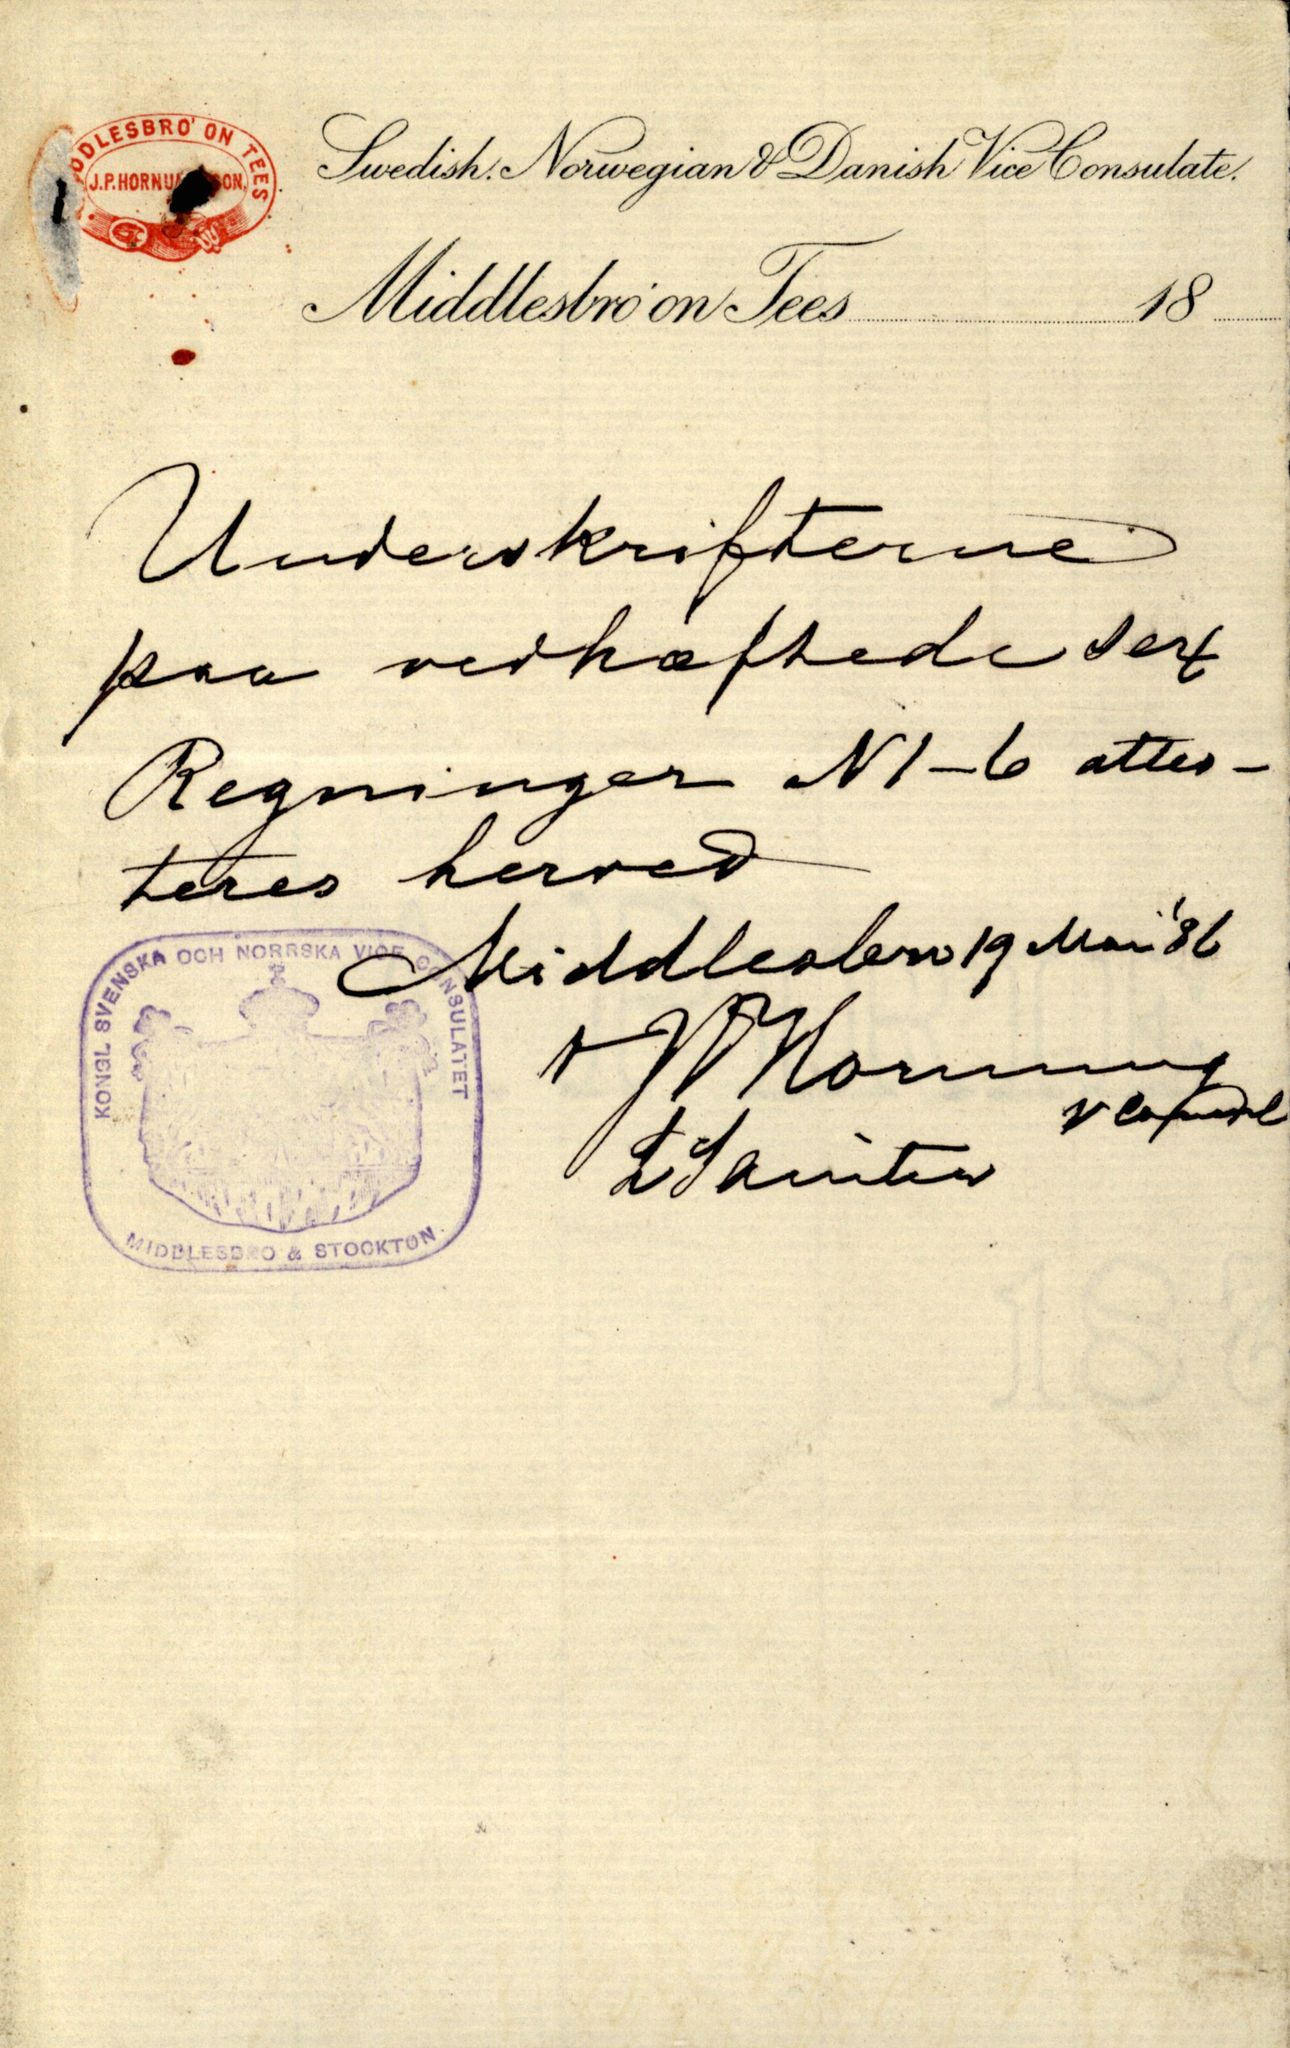 MIDDLESBRO' ON TEES
J.P.HORNUNG SON.
Swedish. Norwegian & Danish Vice Consulate.
Middlesbro' on Tees 18
Underskrifterne
paa vedhæftede sex
Regninger N 1-6 attes-
teres herved
Middlesbro 19 Mai '86
Hornung
v Consul
KONGL SVENSKA OCH NORRSKA VICE CONSULATET
MIDDLESBRO & STOCKTON.